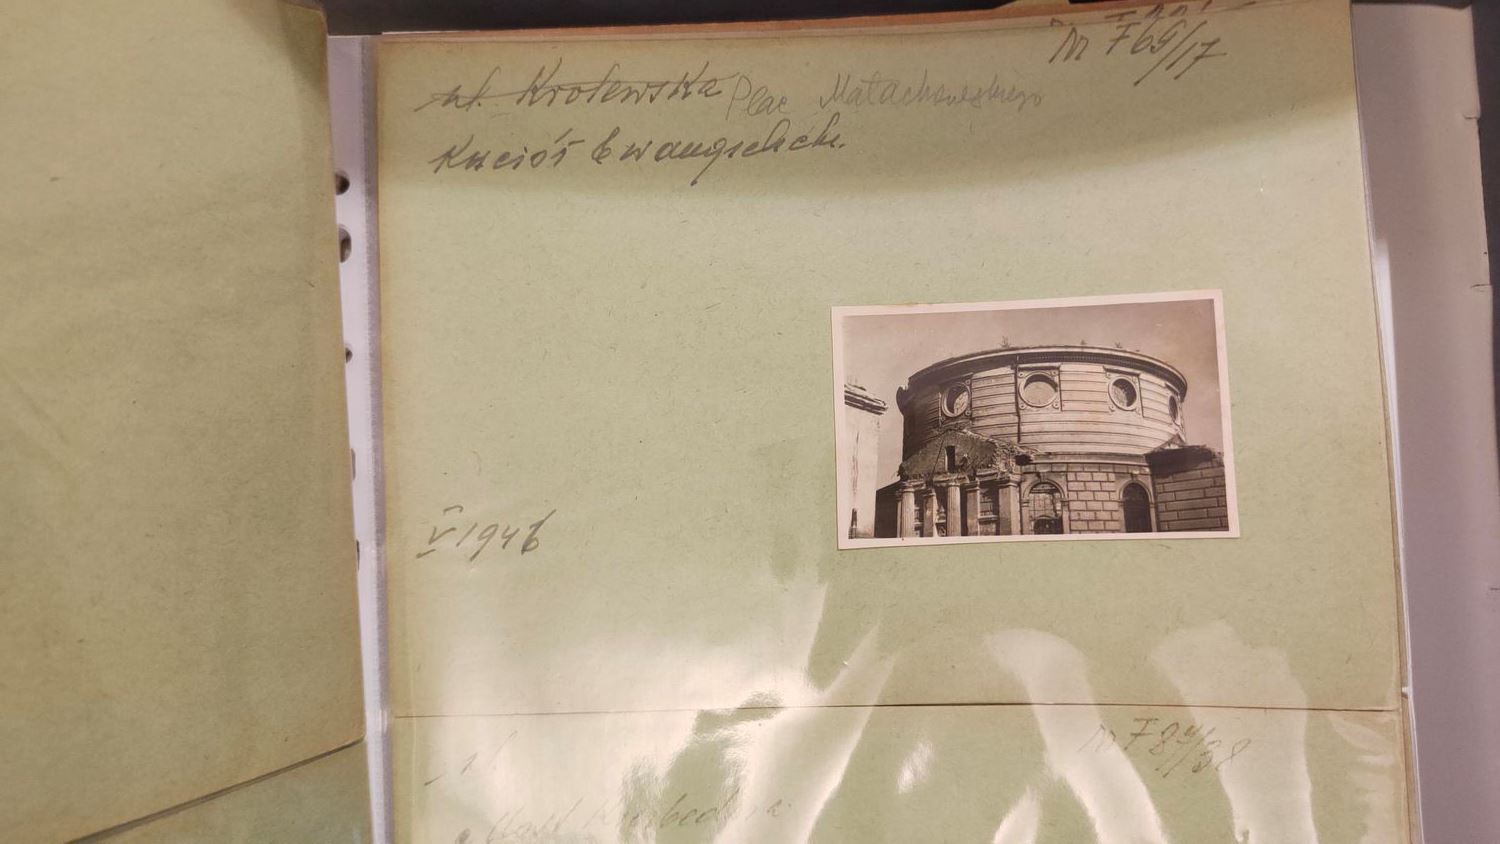 Nr F 69/17
ul. Krolewska Plac Małachowskiego
Kościół Ewangelick.
V 1946
Nr F 84/38